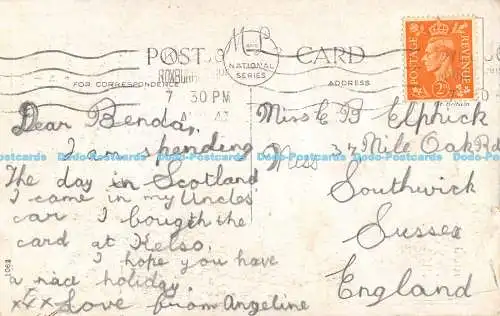 POST CARD
M B
NATIONAL
SERIES
FOR CORRESPONDENCE
ADDRESS
ROXBURGH
7 30 PM
POSTAGE
REVENUE
Dear Benda,
I am spending
The day in Scotland
I came in my Uncles
car I bougth the
card at Kelso,
I hope you have
a nice holiday.
xxx Love from Angeline
Miss C B Elphick
37 Mile Oak Rd
Miss
Southwick
Sussex
England
1068
Dodo-Postcards Dodo-Postcards Dodo-Postcards Dodo-Postcards Dodo-Postcards